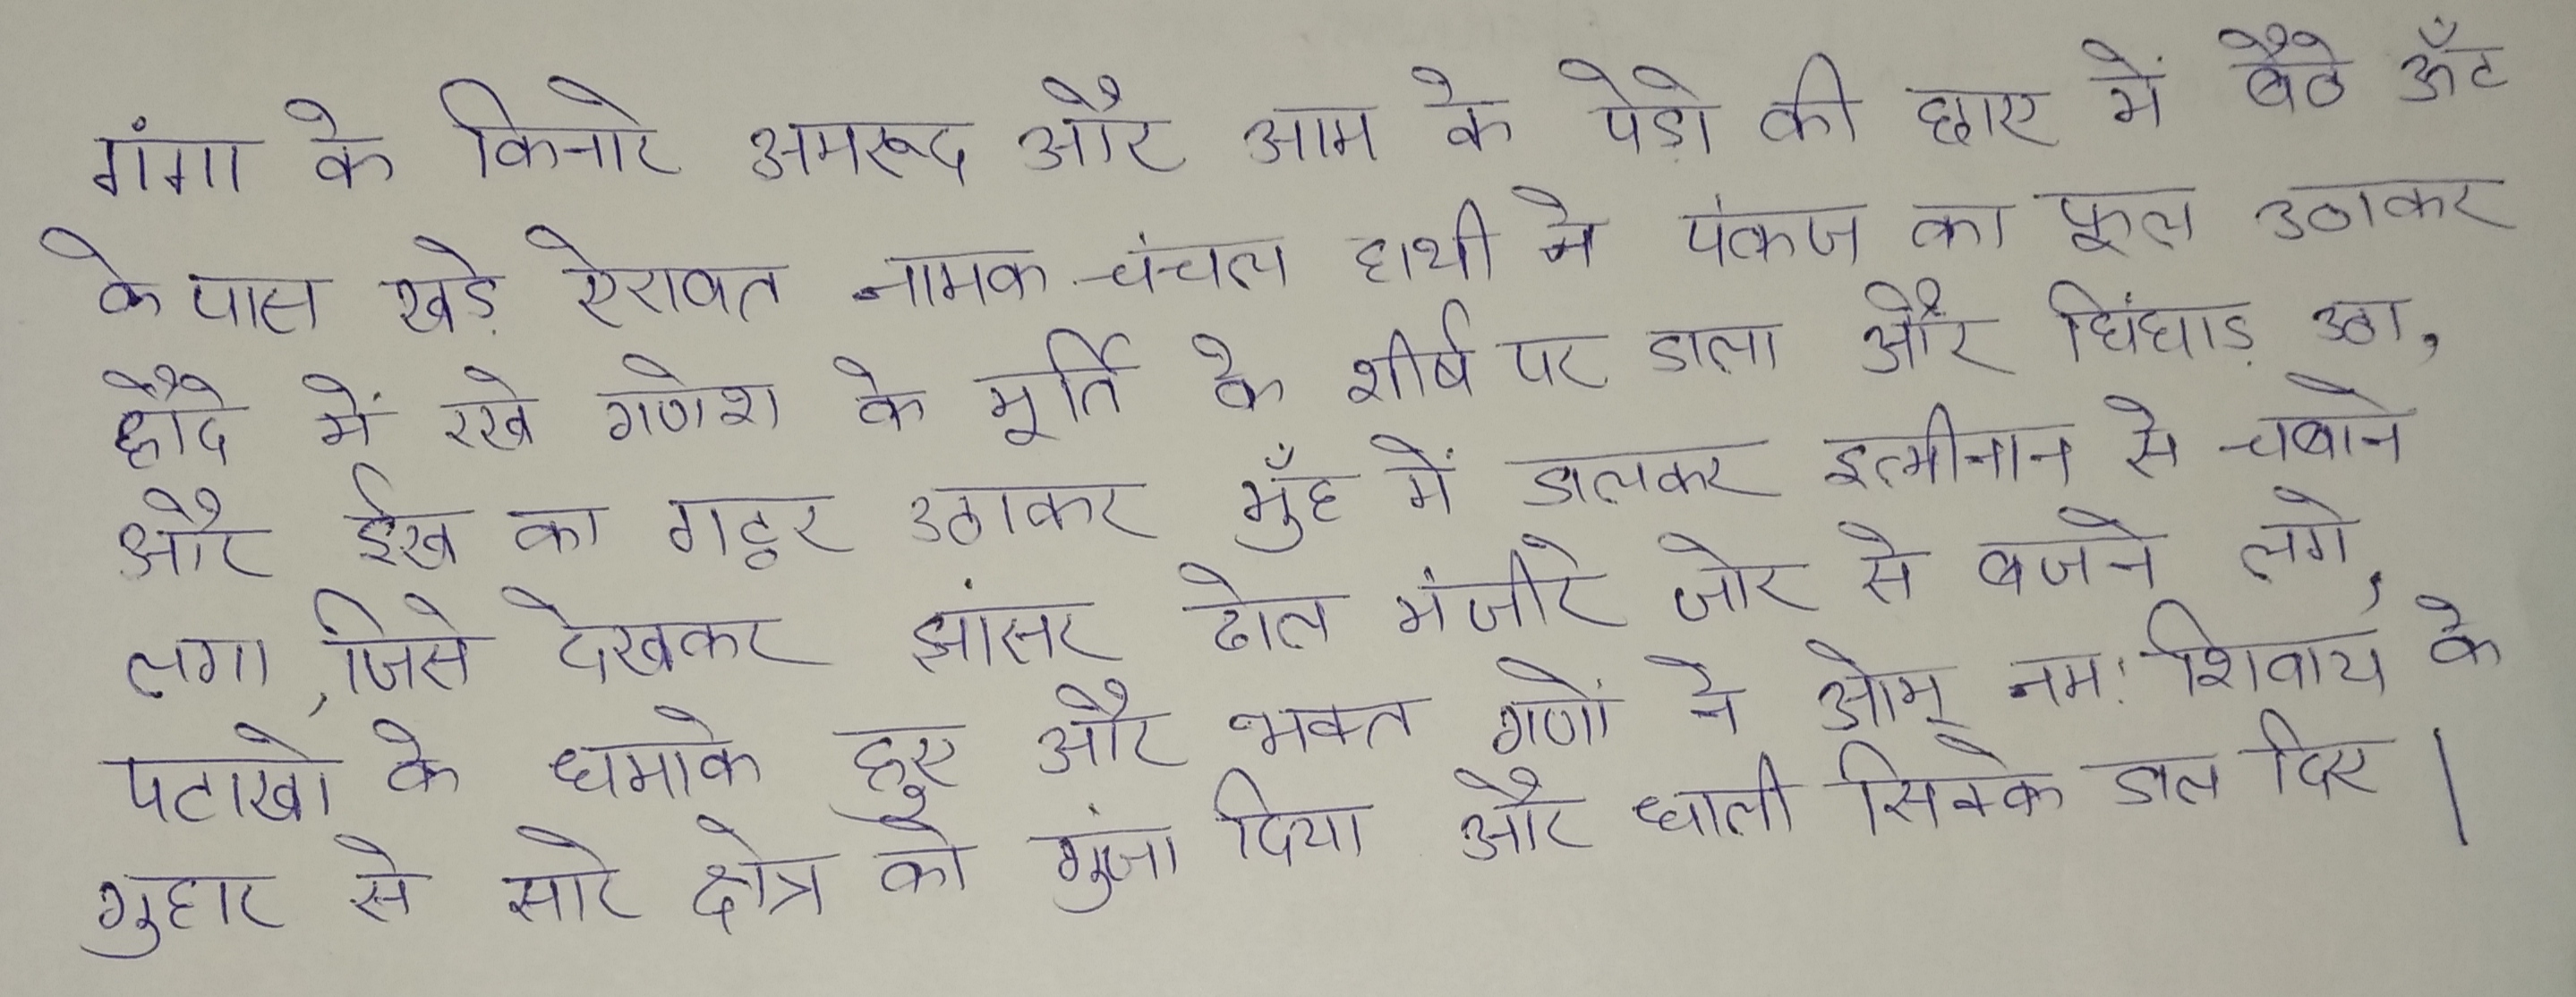 गंगा के किनारे अमरूद और आम के पेडो की छाए में बैठे ऊँट
के पास खड़े ऐरावत नामक चंचल हाथी ने पंकज का फूल उठाकर
हौदे में रखे गणेश के मूर्ति के शीर्ष पर डाला और घिंघाड़ उठा,
और ईख का गट्ठर उठाकर मुँह में डालकर इत्मीनान से चबाने
लगा, जिसे देखकर झांसर ढोल मंजीरे जोर से बजने लगे,
पटाखो के धमाके हुए और भक्त गणों ने ओम् नमः शिवाय के
गुहार से सारे क्षेत्र को गुंजा दिया और थाली सिक्के डाल दिए |